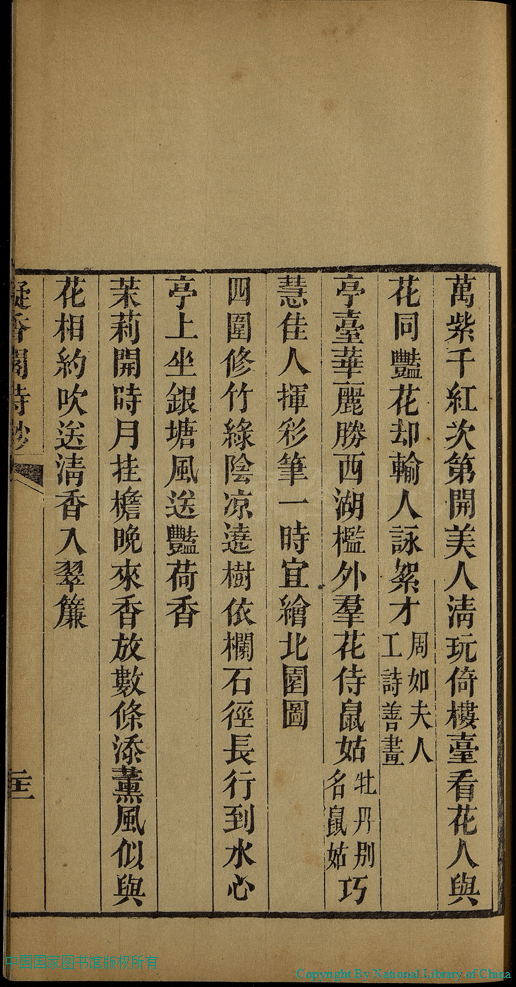 萬紫千紅次第開美人淸玩倚樓臺看花人與
花同豔花却輸人詠絮才周如夫人工詩善畫
亭臺華麗勝西湖檻外羣花侍鼠姑牡丹别名鼠姑巧
慧佳人揮彩筆一時宜繪北園圖
四圍修竹綠陰凉遶樹依欄石徑長行到水心
亭上坐銀塘風送豔荷香
茉莉開時月挂檐晚來香放數條添薰風似與
花相約吹送淸香入翠簾
凝香閣詩鈔
中国国家图书馆版权所有
Copyright By National Library of China